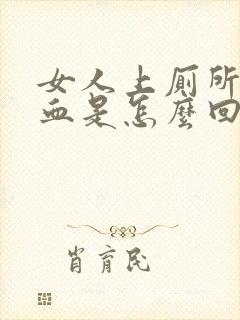 女人上厕所
血是怎麽回
肖育民